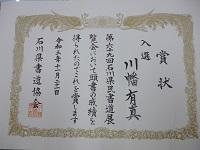 賞状
入選
川幡有真
第六九回石川県民書道展
覧会において頭書の成績を
得られたのでこれを賞します
令和三年十一月二十一日
石川県書道協会